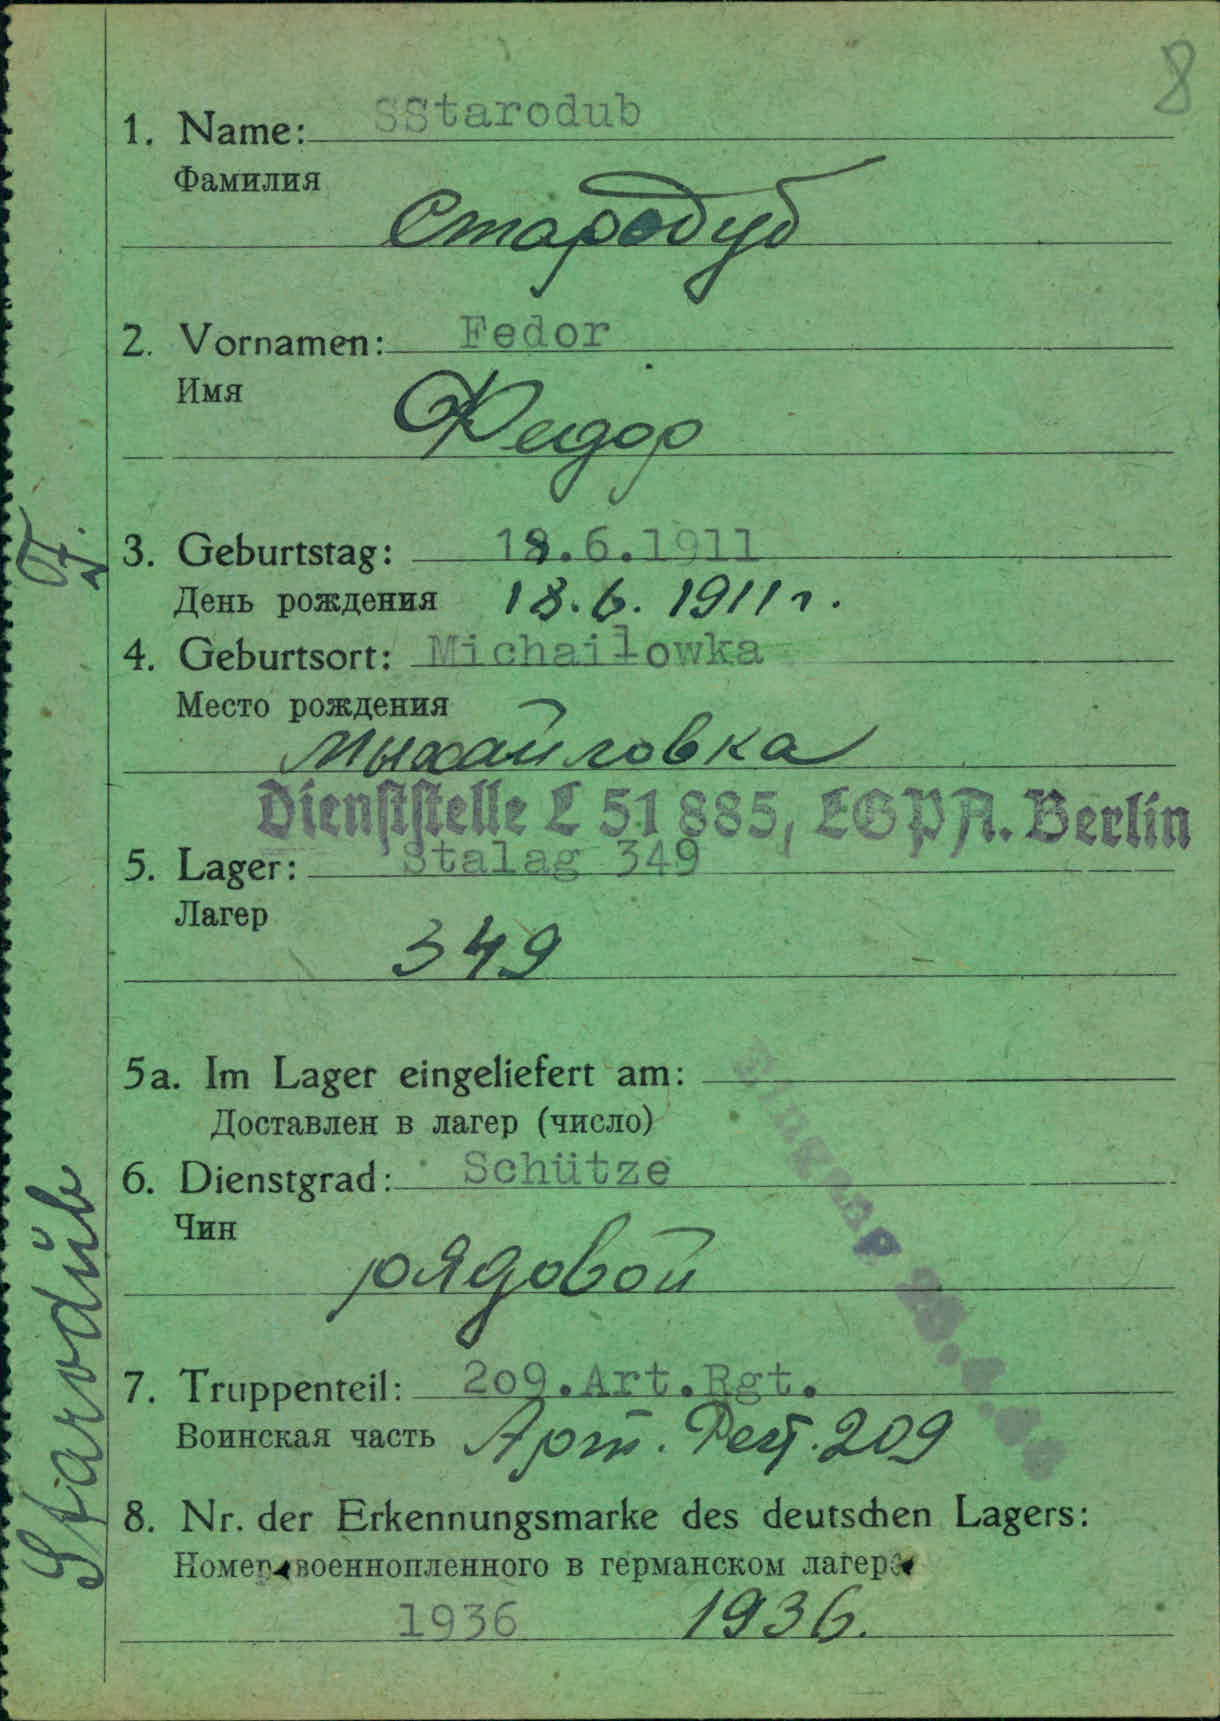 8
1. Name: SStarodub
Фамилия
Стародуб
2. Vornamen: Fedor
Имя
Федор
3. Geburtstag: 18.6.1911
День рождения 18.6.1911 г.
4. Geburtsort: Michailowka
Место рождения
Мыхайловка
Dienststelle L 51 885, LGPA. Berlin
5. Lager: Stalag 349
Лагер
349
5a. Im Lager eingeliefert am:
Доставлен в лагер (число)
Eingang
6. Dienstgrad: Schütze
Чин
рядовой
7. Truppenteil: 209.Art.Rgt.
Воинская часть Арт. Рег. 209
8. Nr. der Erkennungsmarke des deutschen Lagers:
Номер военнопленного в германском лагере
1936 1936.
Starodub F.